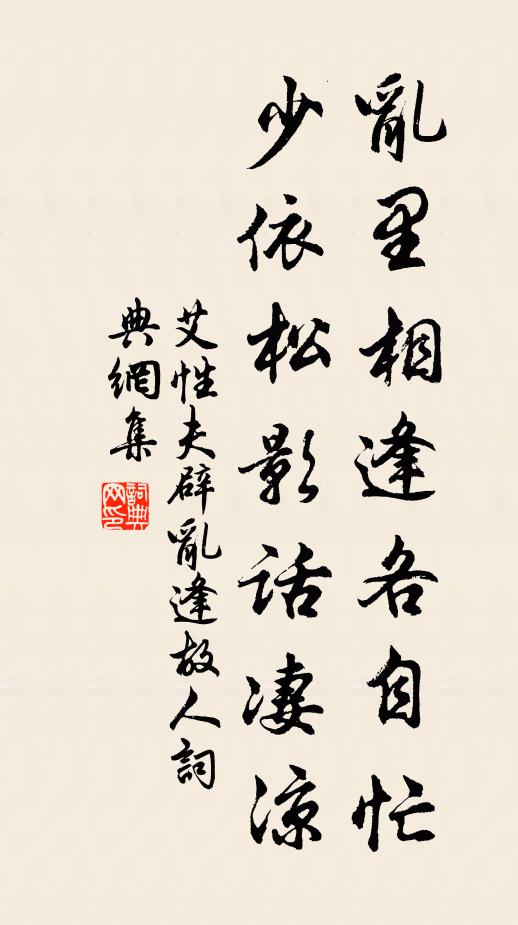 亂里相逢各自忙
少依松影話凄涼
艾性夫辟亂逢故人詞
典網集
詞典
网印